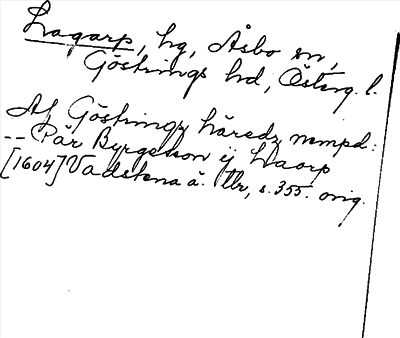 Lagarp, hg, Åsbo sn,
Göstrings hd, Österg. l.
Af Göstringz häredz nempd:
-- Pär Byrgeson ij Laarp
[1604] Vadstena ä. tlr, s. 355. orig.